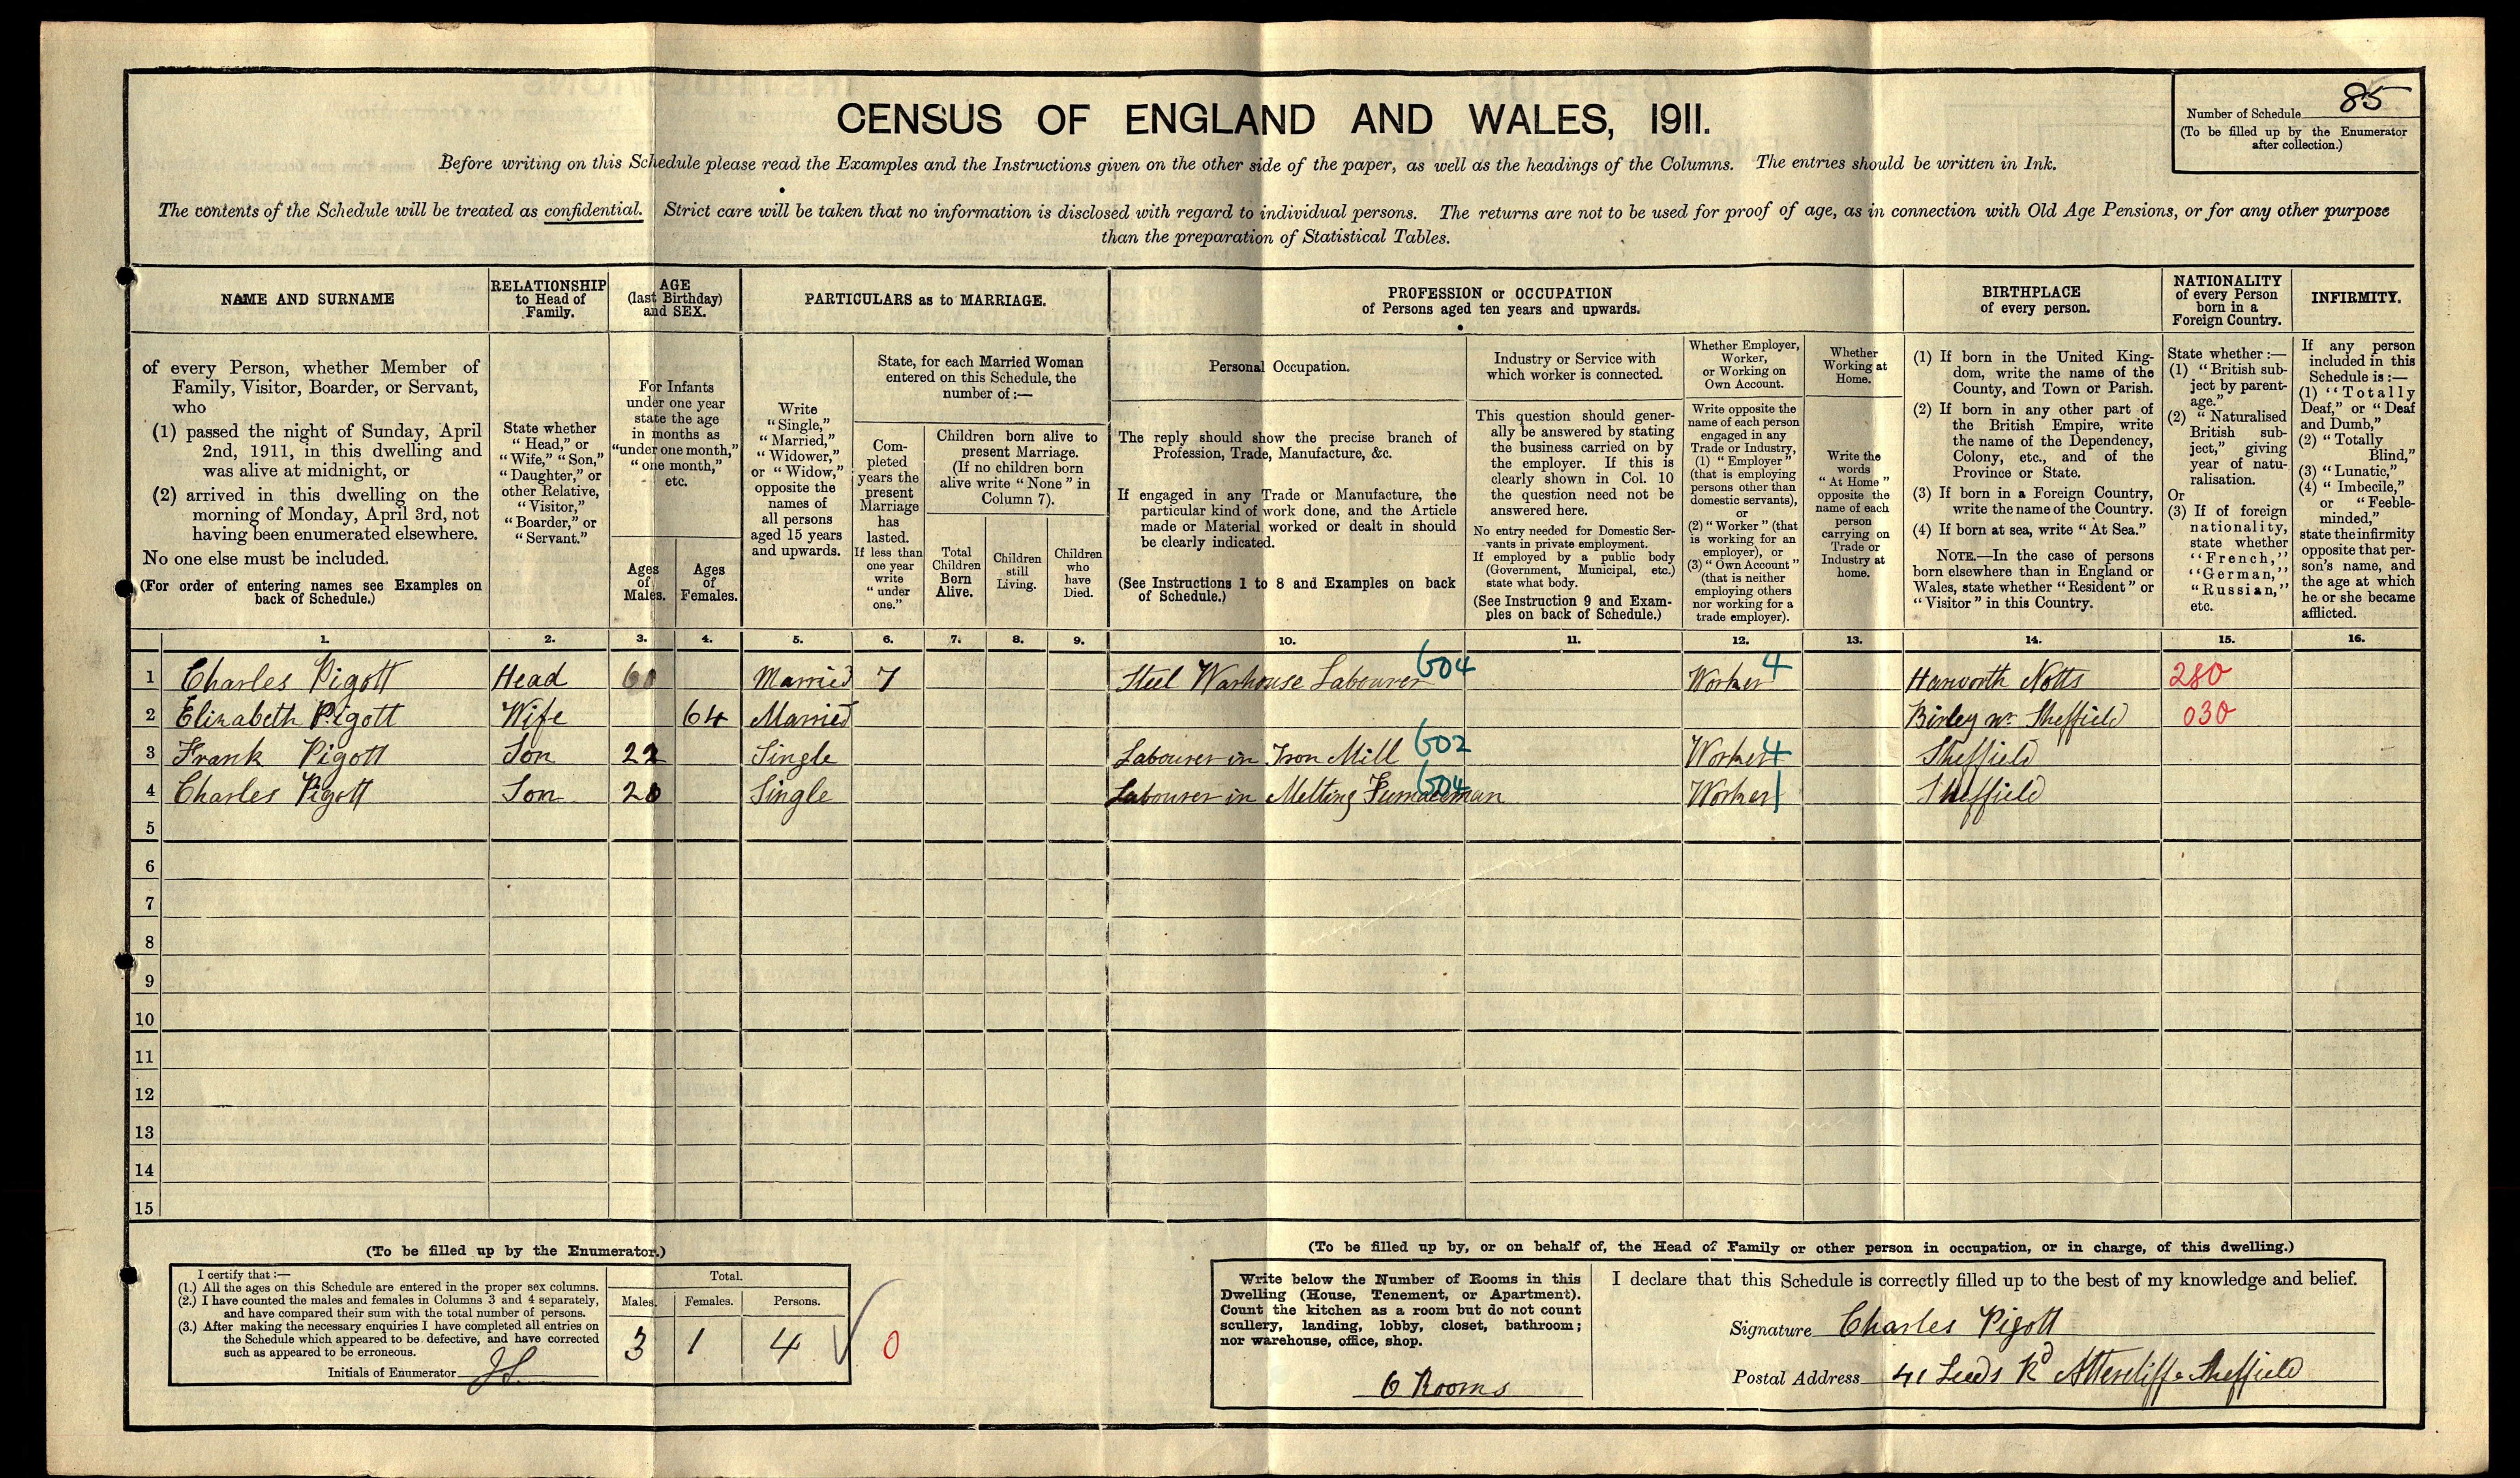 CENSUS OF ENGLAND AND WALES, 1911.
Number of Schedule 85
(To be filled up by the Enumerator
after collection.)
Before writing on this Schedule please read the Examples and the Instructions given on the other side of the paper, as well as the headings of the Columns. The entries should be written in Ink.
The contents of the Schedule will be treated as confidential. Strict care will be taken that no information is disclosed with regard to individual persons. The returns are not to be used for proof of age, as in connection with Old Age Pensions, or for any other purpose
than the preparation of Statistical Tables.
NAME AND SURNAME
of every Person, whether Member of
Family, Visitor, Boarder, or Servant,
who
(1) passed the night of Sunday, April
2nd, 1911, in this dwelling and
was alive at midnight, or
(2) arrived in this dwelling on the
morning of Monday, April 3rd, not
having been enumerated elsewhere.
No one else must be included.
(For order of entering names see Examples on
back of Schedule.)
RELATIONSHIP
to Head of
Family.
State whether
"Head," or
"Wife," "Son,"
"Daughter," or
other Relative,
"Visitor,"
"Boarder," or
"Servant."
AGE
(last Birthday)
and SEX.
For Infants
under one year
state the age
in months as
"under one month,"
"one month,"
etc.
Ages
of
Males.
Ages
of
Females.
PARTICULARS as to MARRIAGE.
Write
"Single,"
"Married,"
"Widower,"
or "Widow,"
opposite the
names of
all persons
aged 15 years
and upwards.
State, for each Married Woman
entered on this Schedule, the
number of:—
Com-
pleted
years the
present
Marriage
has
lasted.
If less than
one year
write
"under
one."
Children born alive to
present Marriage.
(If no children born
alive write "None" in
Column 7).
Total
Children
Born
Alive.
Children
still
Living.
Children
who
have
Died.
PROFESSION or OCCUPATION
of Persons aged ten years and upwards.
Personal Occupation.
The reply should show the precise branch of
Profession, Trade, Manufacture, &c.
If engaged in any Trade or Manufacture, the
particular kind of work done, and the Article
made or Material worked or dealt in should
be clearly indicated.
(See Instructions 1 to 8 and Examples on back
of Schedule.)
Industry or Service with
which worker is connected.
This question should gener-
ally be answered by stating
the business carried on by
the employer. If this is
clearly shown in Col. 10
the question need not be
answered here.
No entry needed for Domestic Ser-
vants in private employment.
If employed by a public body
(Government, Municipal, etc.)
state what body.
(See Instruction 9 and Exam-
ples on back of Schedule.)
Whether Employer,
Worker,
or Working on
Own Account.
Write opposite the
name of each person
engaged in any
Trade or Industry,
(1) "Employer"
(that is employing
persons other than
domestic servants),
or
(2) "Worker" (that
is working for an
employer), or
(3) "Own Account"
(that is neither
employing others
nor working for a
trade employer).
Whether
Working at
Home.
Write the
words
"At Home"
opposite the
name of each
person
carrying on
Trade or
Industry at
home.
BIRTHPLACE
of every person.
(1) If born in the United King-
dom, write the name of the
County, and Town or Parish.
(2) If born in any other part of
the British Empire, write
the name of the Dependency,
Colony, etc., and of the
Province or State.
(3) If born in a Foreign Country,
write the name of the Country.
(4) If born at sea, write "At Sea."
NOTE.—In the case of persons
born elsewhere than in England or
Wales, state whether "Resident" or
"Visitor" in this Country.
NATIONALITY
of every Person
born in a
Foreign Country.
State whether:—
(1) "British sub-
ject by parent-
age."
(2) "Naturalised
British sub-
ject," giving
year of natu-
ralisation.
Or
(3) If of foreign
nationality,
state whether
"French,"
"German,"
"Russian,"
etc.
INFIRMITY.
If any person
included in this
Schedule is:—
(1) "Totally
Deaf," or "Deaf
and Dumb,"
(2) "Totally
Blind,"
(3) "Lunatic,"
(4) "Imbecile,"
or "Feeble-
minded,"
state the infirmity
opposite that per-
son's name, and
the age at which
he or she became
afflicted.
1. 2. 3. 4. 5. 6. 7. 8. 9. 10. 11. 12. 13. 14. 15. 16.
1 Charles Pigott Head 60 Married 7 Steel Warhouse Labourer 604 Worker 4 Harworth Notts 280
2 Elizabeth Pigott Wife 64 Married Birley nr Sheffield 030
3 Frank Pigott Son 22 Single Labourer in Iron Mill 602 Worker 4 Sheffield
4 Charles Pigott Son 20 Single Labourer in Melting Furnaceman 604 Worker 1 Sheffield
5
6
7
8
9
10
11
12
13
14
15
(To be filled up by the Enumerator.)
I certify that:—
(1.) All the ages on this Schedule are entered in the proper sex columns.
(2.) I have counted the males and females in Columns 3 and 4 separately,
and have compared their sum with the total number of persons.
(3.) After making the necessary enquiries I have completed all entries on
the Schedule which appeared to be defective, and have corrected
such as appeared to be erroneous.
Initials of Enumerator
Total.
Males. Females. Persons.
3 1 4 0
(To be filled up by, or on behalf of, the Head of Family or other person in occupation, or in charge, of this dwelling.)
Write below the Number of Rooms in this
Dwelling (House, Tenement, or Apartment).
Count the kitchen as a room but do not count
scullery, landing, lobby, closet, bathroom;
nor warehouse, office, shop.
6 Rooms
I declare that this Schedule is correctly filled up to the best of my knowledge and belief.
Signature Charles Pigott
Postal Address 41 Leeds Rd Attercliffe Sheffield